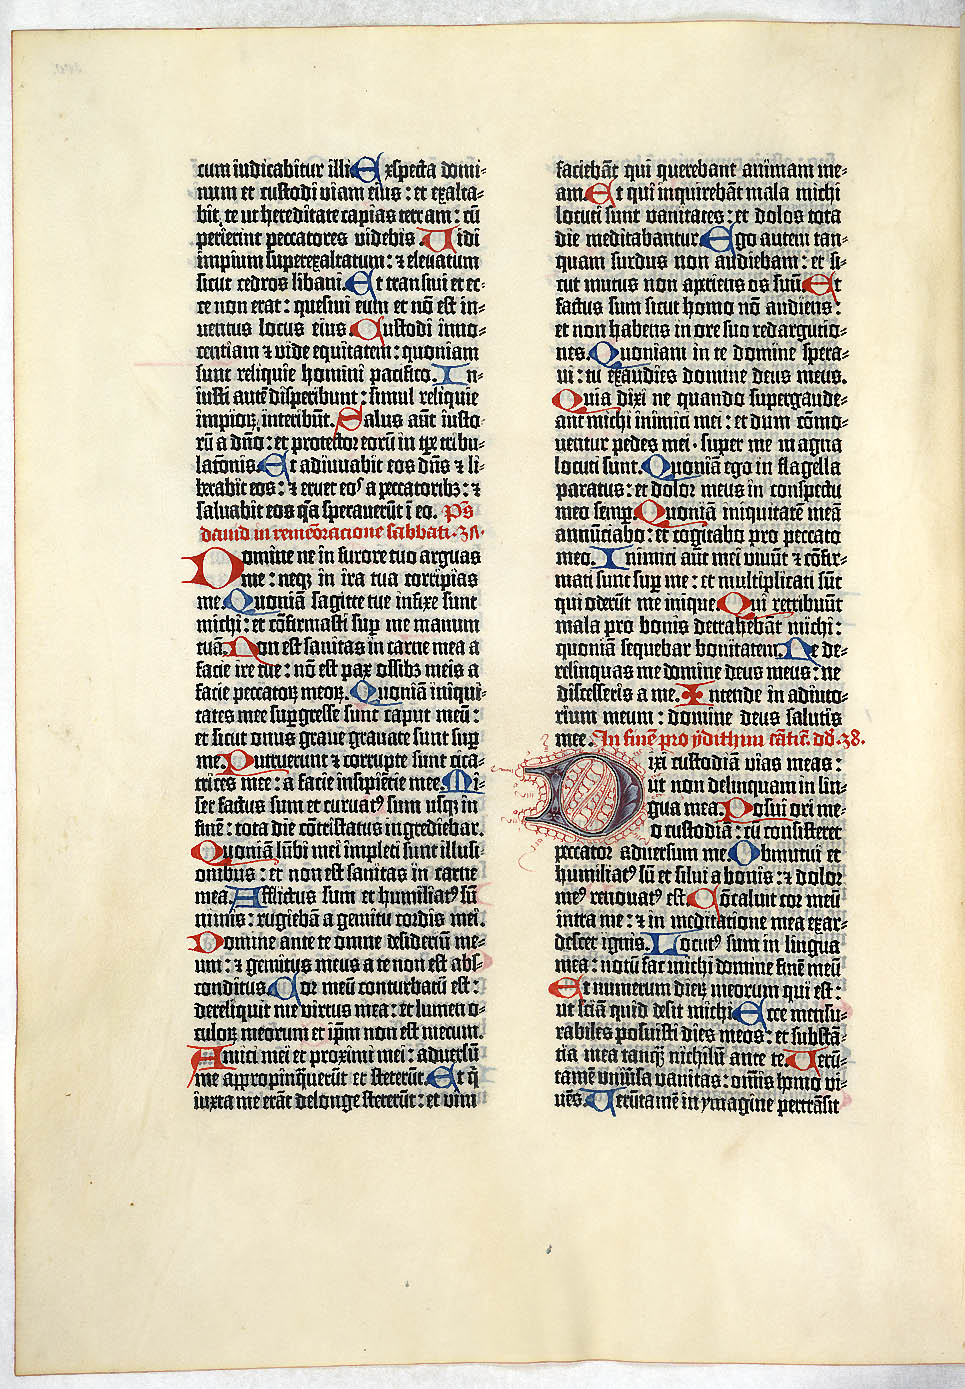 cum iudicabitur illi Exspecta domi-
num et custodi viam eius : et exalta-
bit te ut hereditate capias terram : cū
perierint peccatores videbis. Uidi
impium superexaltatum : ⁊ elevatum
sicut cedros libani. Et transivi et ec-
ce non erat : quesivi eum et nō est in-
ventus locus eius. Custodi inno-
centiam ⁊ vide equitatem : quoniam
sunt reliquie homini pacifico. In-
iusti autē disperibunt : simul reliquie
impioꝝ interibūt. Salus aūt iusto-
rū a dño : et protector eorū in tꝑe tribu-
lationis. Et adiuvabit eos dñs ⁊ li-
berabit eos : ⁊ eruet eoꝰ a peccatoribꝫ : ⁊
salvabit eos qͥa speraverūt ī eo. Pꝭ
david in rememōracione sabbati . 37.
Domine ne in furore tuo arguas
me : neqꝫ in ira tua corripias
me Quoniā sagitte tue infixe sunt
michi : et cōfirmasti suꝑ me manum
tuā. Non est sanitas in carne mea a
facie ire tue : nō est pax ossibꝫ meis a
facie peccatoꝝ meoꝝ. Quoniā iniqui-
tates mee suꝑgresse sunt caput meū :
et sicut onus grave gravate sunt suꝑ
me. Putruerunt ⁊ corrupte sunt cica-
trices mee : a facie insipiētie mee. Mi-
ser factus sum et curvatꝰ sum usqꝫ in
finē : tota die cōtristatus ingrediebar.
Quoniā lūbi mei impleti sunt illusi-
onibus : et non est sanitas in carne
mea. Afflictus sum et humiliatꝰ sū
nimis : rugiebā a gemitu cordis mei.
Domine ante te omne desideriū me-
um : ⁊ gemitus meus a te non est abs-
conditus. Cor meū conturbatū est :
dereliquit me virtus mea : et lumen o-
culoꝝ meorum et ip̄m non est mecum.
Amici mei et proximi mei : adversū
me appropinq̄verūt et steterūt. Et qͥ
iuxta me erāt de longe steterūt : et vim
faciebāt qui querebant animam me-
am Et qui inquirebāt mala michi
locuti sunt vanitates : et dolos tota
die meditabantur. Ego autem tan-
quam surdus non audiebam : et si-
cut mutus non aperiens os suū Et
factus sum sicut homo nō audiens :
et non habens in ore suo redargutio-
nes. Quoniam in te domine spera-
vi : tu exaudies domine deus meus.
Quia dixi ne quando supergaude-
ant michi inimici mei : et dum cōmo-
ventur pedes mei . super me magna
locuti sunt. Quoniā ego in flagella
paratus : et dolor meus in conspectu
meo semꝑ Quoniā iniquitatē meā
annūciabo : et cogitabo pro peccato
meo. Inimici aūt mei vivūt ⁊ cōfir-
mati sunt suꝑ me : et multiplicati sūt
qui oderūt me inique Qui retribuūt
mala pro bonis detrahebāt michi :
quoniā sequebar bonitatem. Ne de-
relinquas me domine deus meus : ne
discesseris a me. Intende in adiuto-
rium meum : domine deus salutis
mee. In finē pro ydithun cātic̄. dd̄ .38.
Dixi custodiam vias meas :
ut non delinquam in lin-
gua mea. Posui ori me-
o custodiā : cū consisteret
peccator adversum me. Obmutui et
humiliatꝰ sū et silui a bonis : ⁊ dolor
meꝰ renovatꝰ est. Cōcaluit cor meū
intra me : ⁊ in meditatione mea exar-
descet ignis. Locutꝰ sum in lingua
mea : notū fac michi domine finē meū
Et numerum dieꝝ meorum qui est :
ut sciā quid desit michi Ecce mensu-
rabiles posuisti dies meos : et substā-
tia mea tanqꝫ nichilū ante te. Uerū-
tamē univ̄sa vanitas : om̄is homo vi-
vēs. Uerūtamē in ymagine pertrāsit